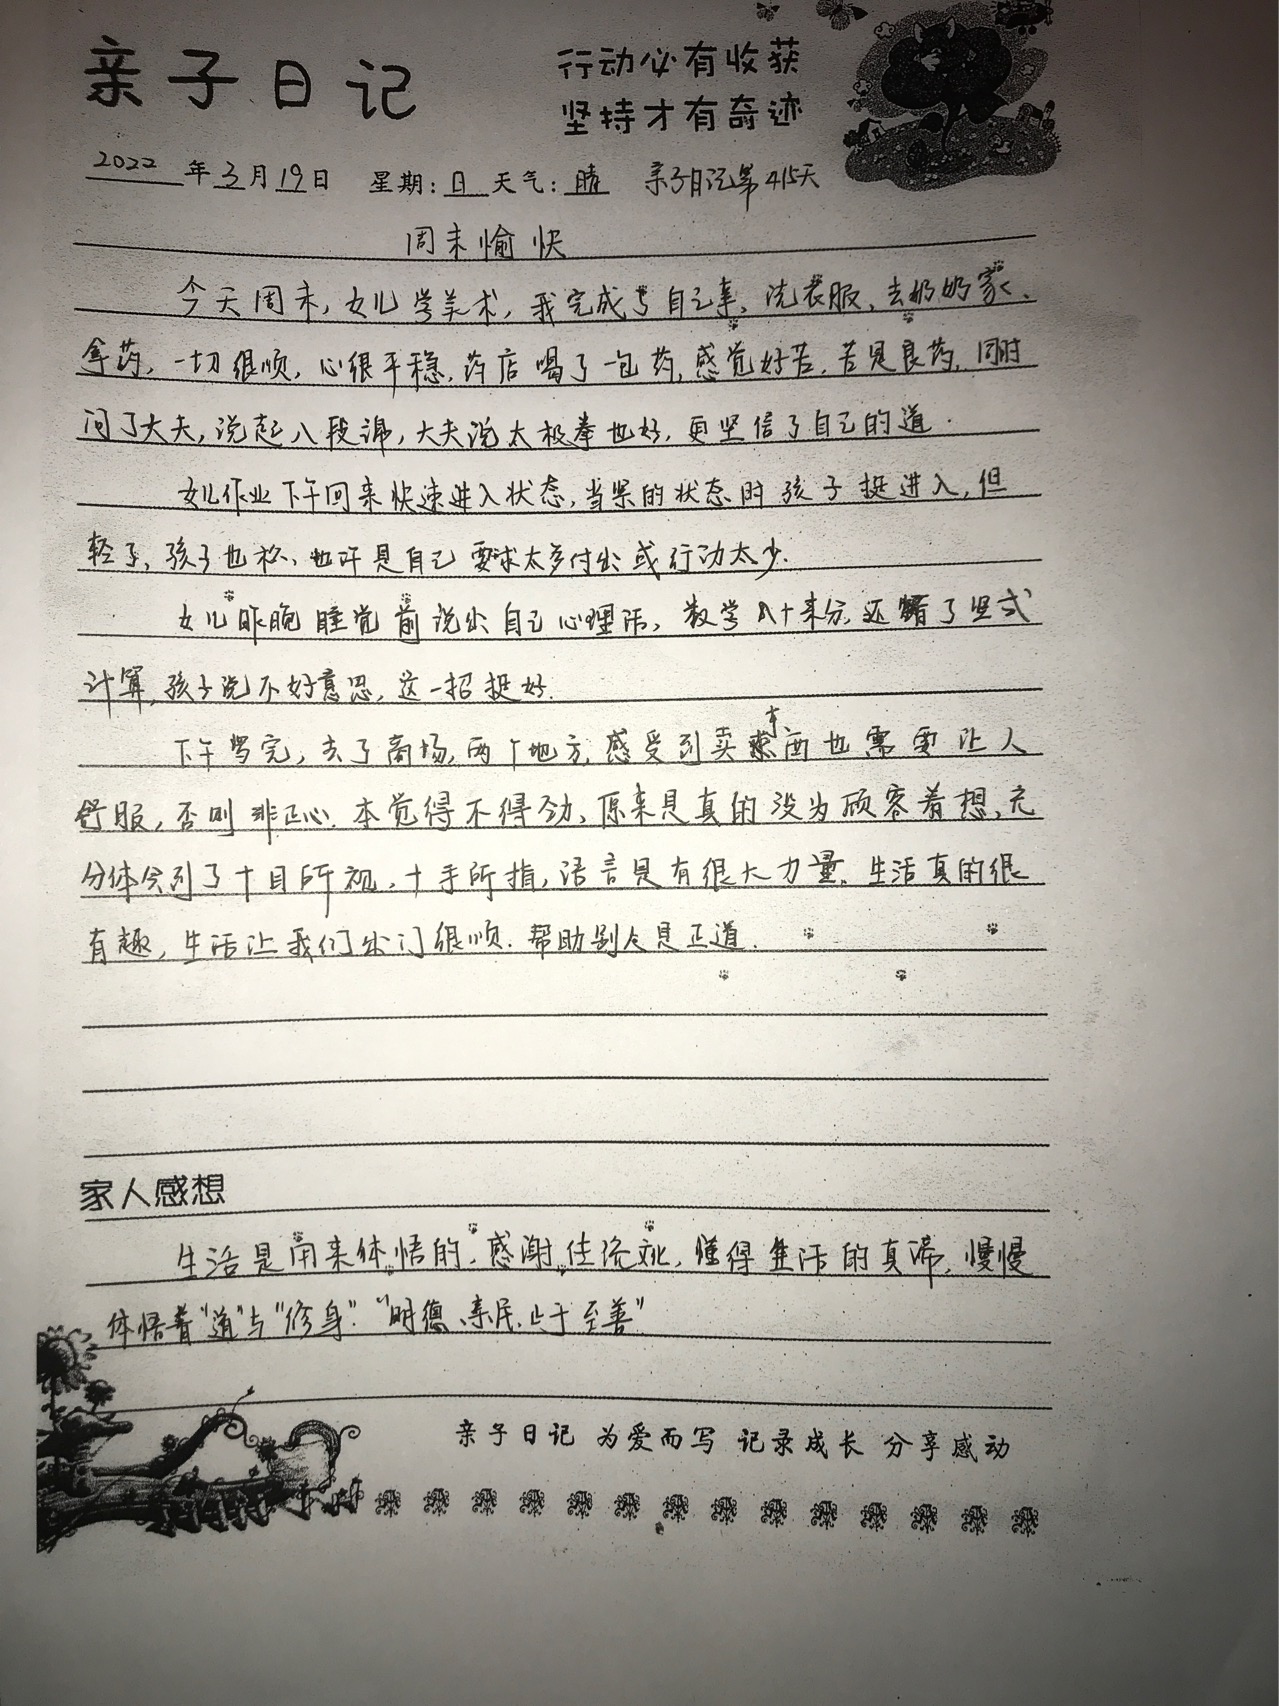 亲子日记
行动必有收获
坚持才有奇迹
2022年3月19日 星期:日 天气:晴 亲子日记第415天
周末愉快
今天周末,女儿学美术,我完成自己事、洗衣服、去奶奶家、
拿药,一切很顺,心很平稳,药店喝了一包药,感觉好苦,苦是良药,同时
问了大夫,说起八段锦,大夫说太极拳也好,更坚信了自己的道.
女儿作业下午回来快速进入状态,当紧的状态时孩子挺进入,但
轻了,孩子也松,也许是自己要求太多付出或行动太少.
女儿昨晚睡觉前说出自己心理话,数学八十来分,还错了竖式
计算,孩子说不好意思,这一招挺好.
下午驾完,去了商场,两个地方,感受到卖东西也需要让人
舒服,否则非正心.本觉得不得劲,原来是真的没为顾客着想,充
分体会到了十目所视,十手所指,语言是有很大力量.生活真的很
有趣,生活让我们出门很顺.帮助别人是正道.
家人感想
生活是用来体悟的,感谢传统文化,懂得生活的真谛,慢慢
体悟着"道"与"修身"."明德、亲民、止于至善"
亲子日记 为爱而写 记录成长 分享感动